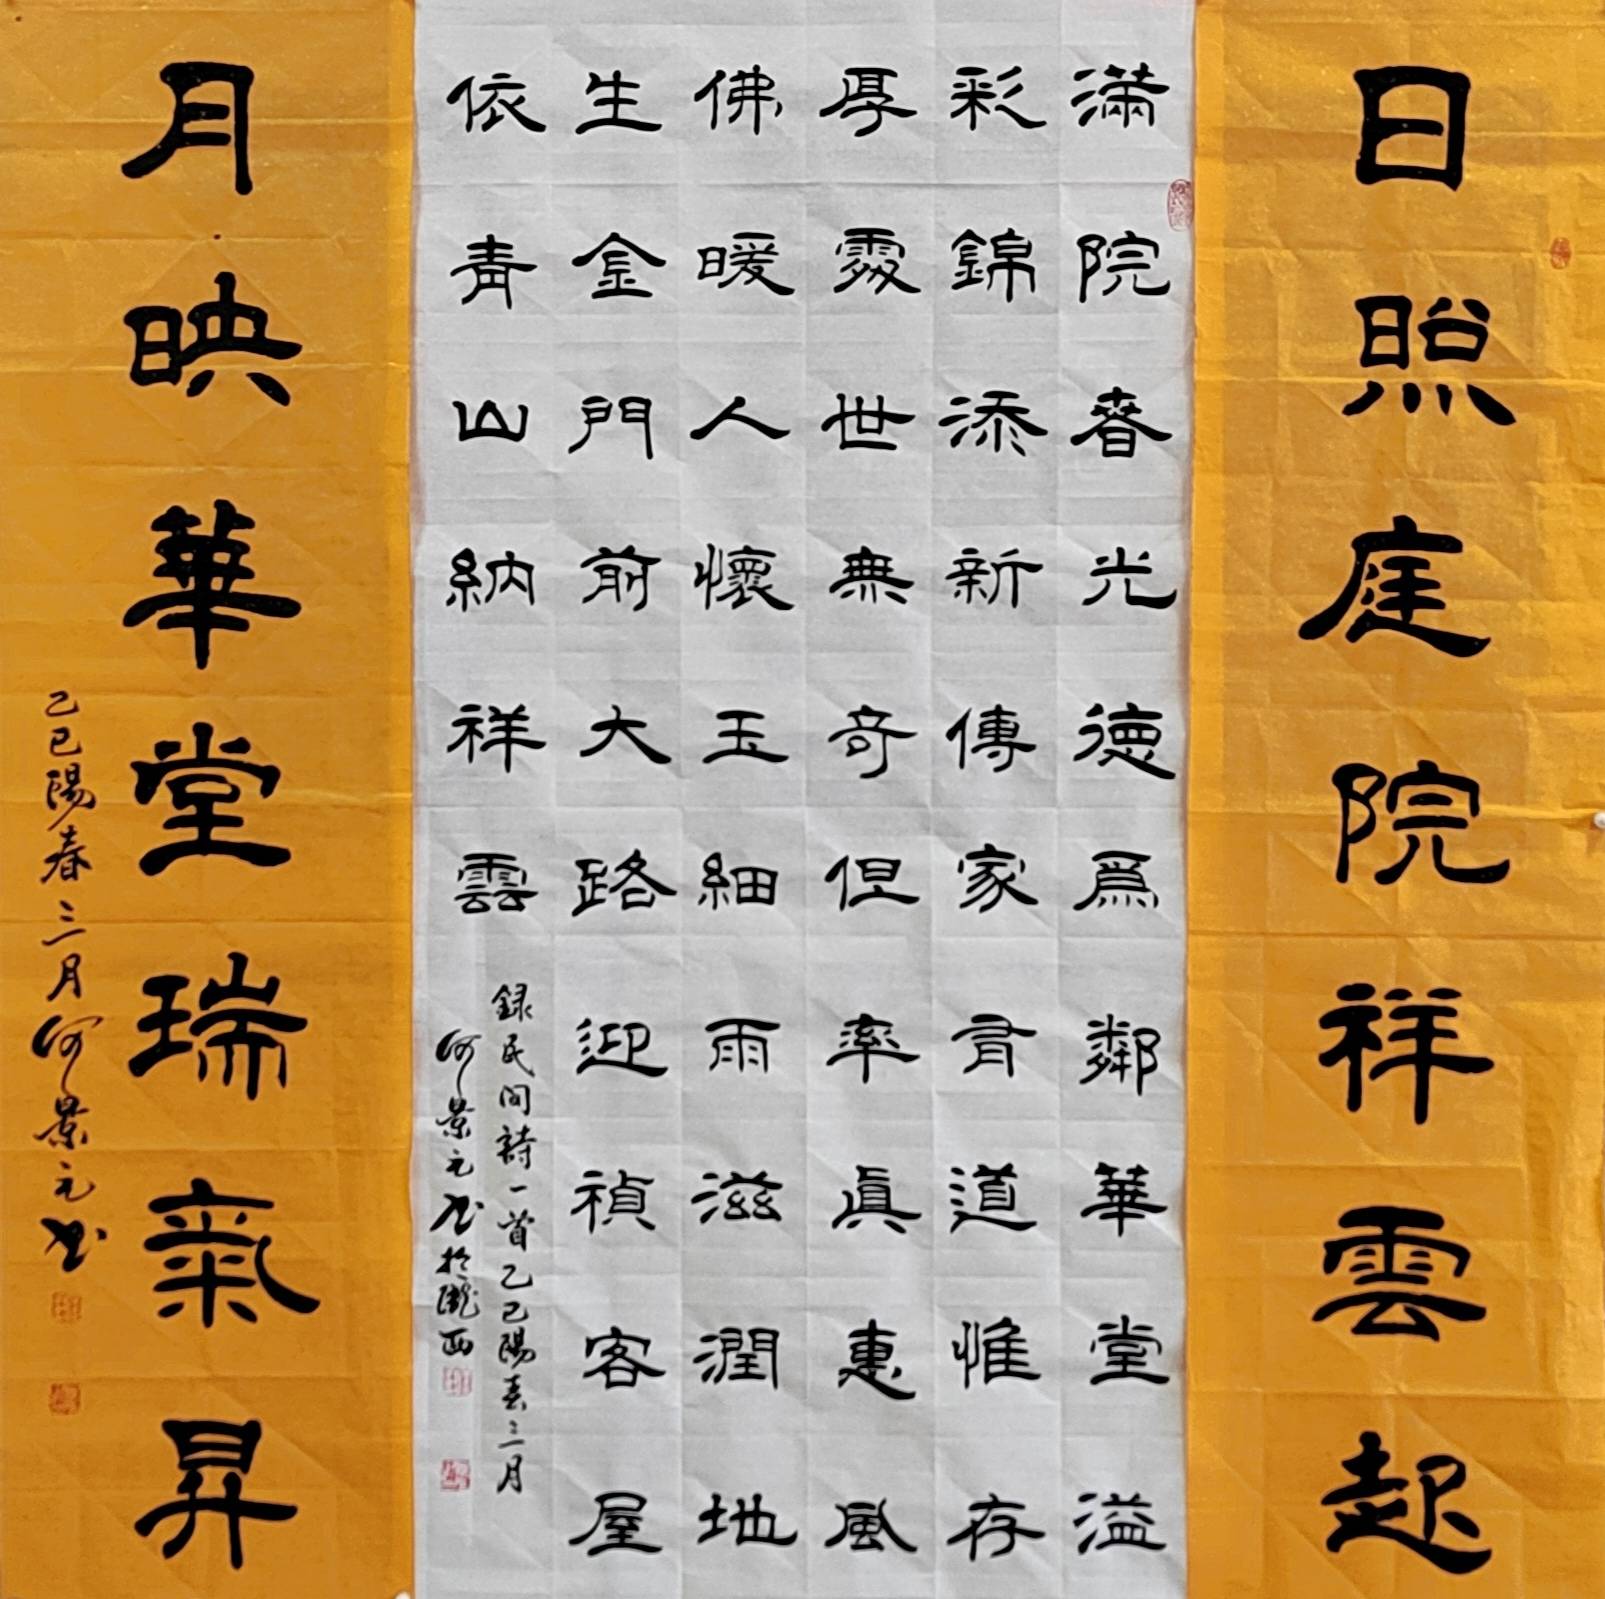 日照庭院祥雲起
滿院春光德為鄰華堂溢
彩錦添新傳家有道惟存
厚處世無奇但率真惠風
佛暖人懷玉細雨滋潤地
生金門前大路迎禎客屋
依青山納祥雲
録民間詩一首乙巳陽春三月
何景元書於隴西
月映華堂瑞氣昇
乙巳陽春三月何景元書